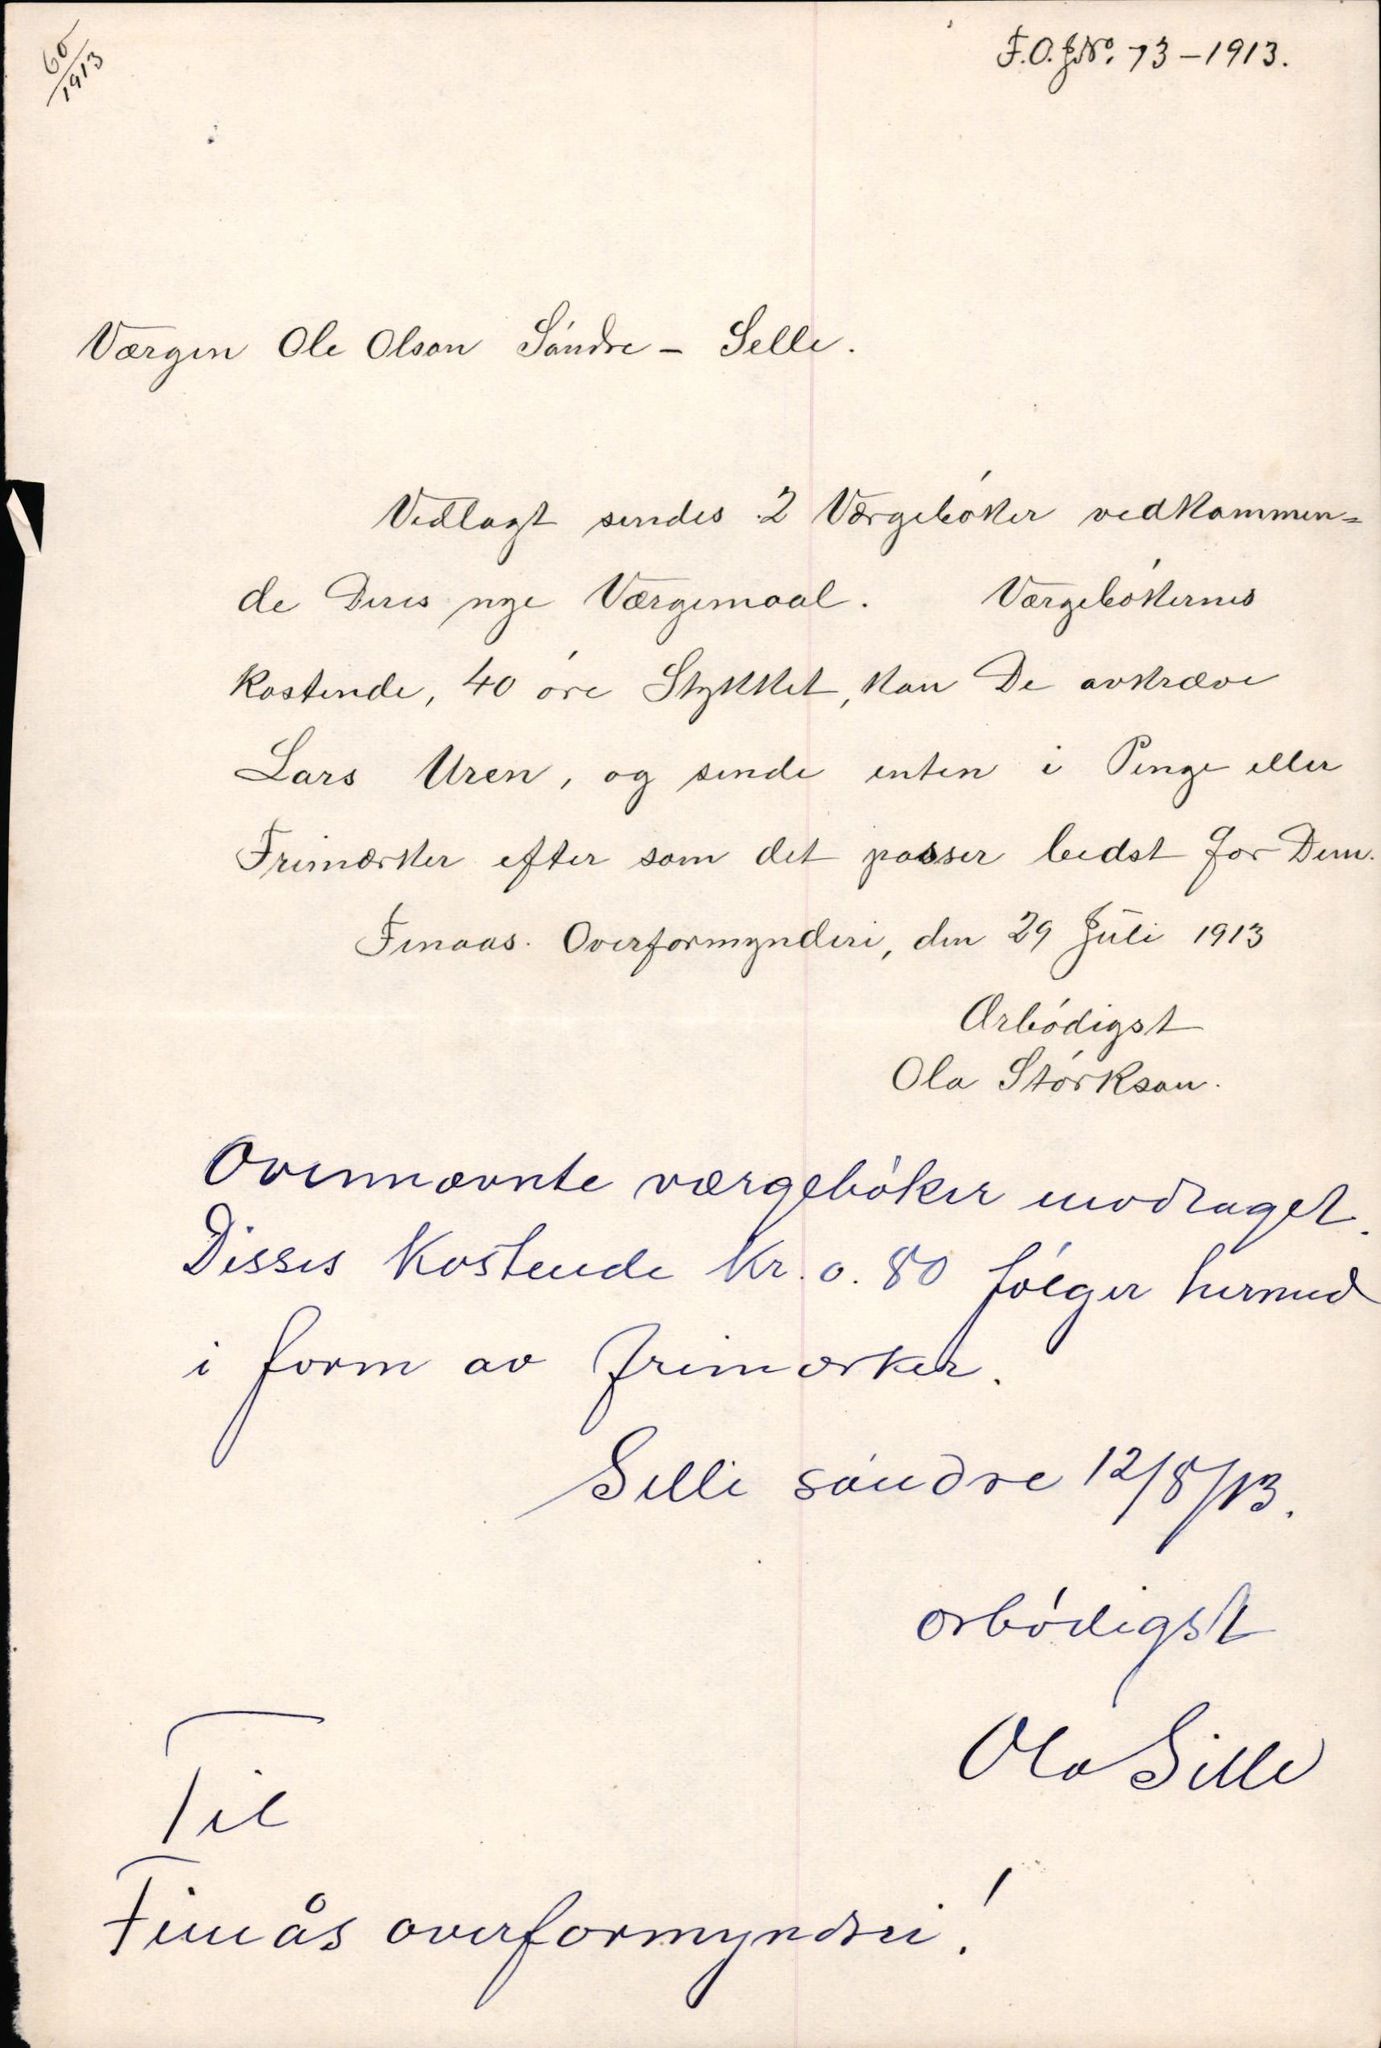 60/1913
F.O.J.No. 73-1913.
Værgen Ole Olson Söndre - Selle.
Vedlagt sendes 2 Værgeböker vedkommen=
de Deres nye Værgemaal. Værgebökernes
kostende, 40 öre Stykket, kan De avkræve
Lars Uren, og sende enten i Penge eller
Frimærker efter som det passer bedst for Dem.
Finaas Overformynderi, den 29 Juli 1913
Ærbödigst
Ola Störkson.
Ovennævnte værgeböker modtaget.
Disses kostende kr. 0.80 fölger hermed
i form av frimærker.
Selle söndre 12/8/13.
ærbödigst
Ola Selle
Til
Finås overformynderi!